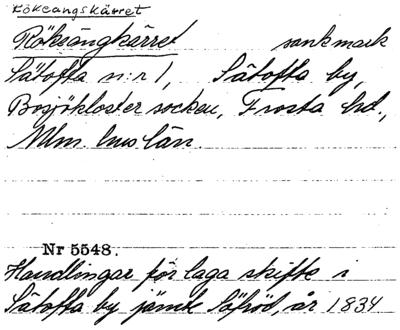 Rökeängskärret
Röksängkärret sankmark
Sätofta n:r 1, Sätofta by,
Bosjökloster socken, Frosta hd.,
Mlm. hus län.
Nr 5548.
Handlingar för laga skifte i
Sätofta by jämte Säfröd, år 1834